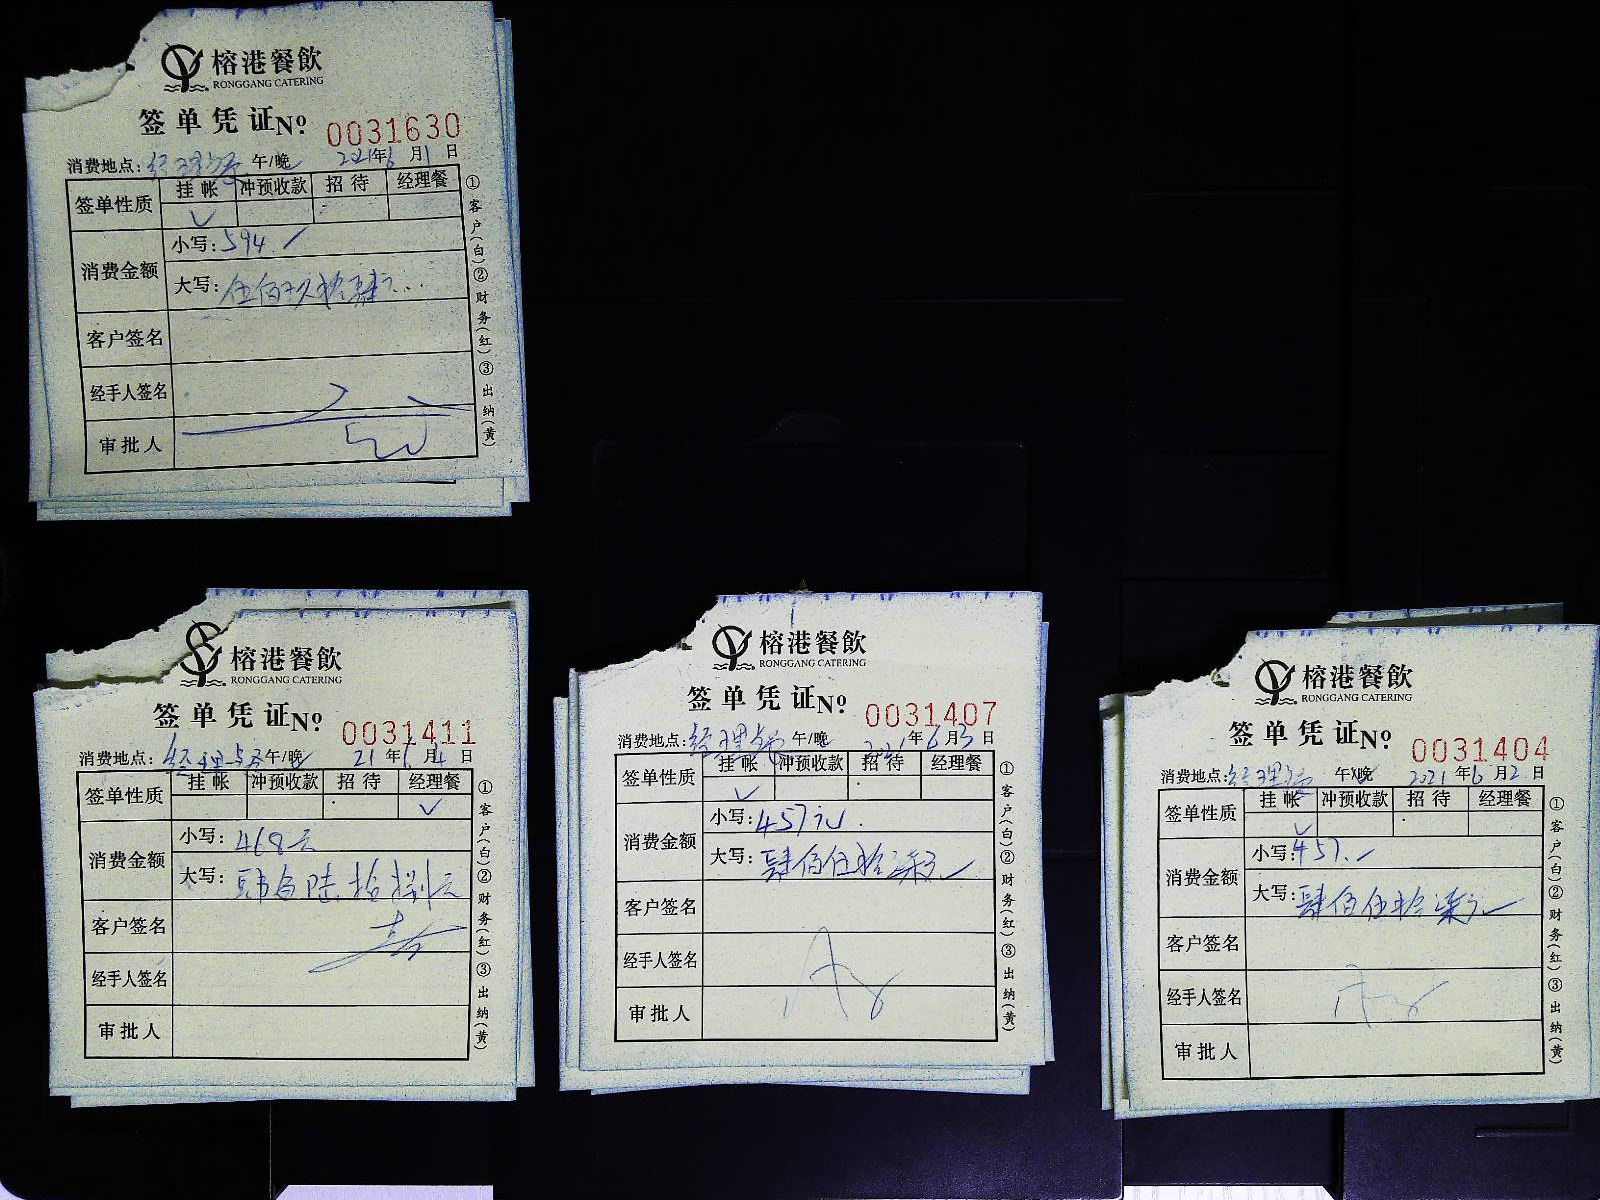 榕港餐飲
RONGGANG CATERING
签单凭证No 0031630
消费地点: 经理 午/晚 2021年6月1日
签单性质 挂帐 冲预收款 招待 经理餐
✓
消费金额 小写: 594.
大写: 伍佰玖拾肆元
客户签名
经手人签名
审批人
①客户(白)②财务(红)③出纳(黄)
榕港餐飲
RONGGANG CATERING
签单凭证No 0031411
消费地点: 经理 午/晚 21年6月4日
签单性质 挂帐 冲预收款 招待 经理餐
✓
消费金额 小写: 468元
大写: 肆佰陆拾捌元
客户签名
经手人签名
审批人
①客户(白)②财务(红)③出纳(黄)
榕港餐飲
RONGGANG CATERING
签单凭证No 0031407
消费地点: 经理 午/晚 2021年6月3日
签单性质 挂帐 冲预收款 招待 经理餐
✓
消费金额 小写: 457元.
大写: 肆佰伍拾柒元
客户签名
经手人签名
审批人
①客户(白)②财务(红)③出纳(黄)
榕港餐飲
RONGGANG CATERING
签单凭证No 0031404
消费地点: 经理 午/晚 2021年6月2日
签单性质 挂帐 冲预收款 招待 经理餐
✓
消费金额 小写: 457.
大写: 肆佰伍拾柒元
客户签名
经手人签名
审批人
①客户(白)②财务(红)③出纳(黄)